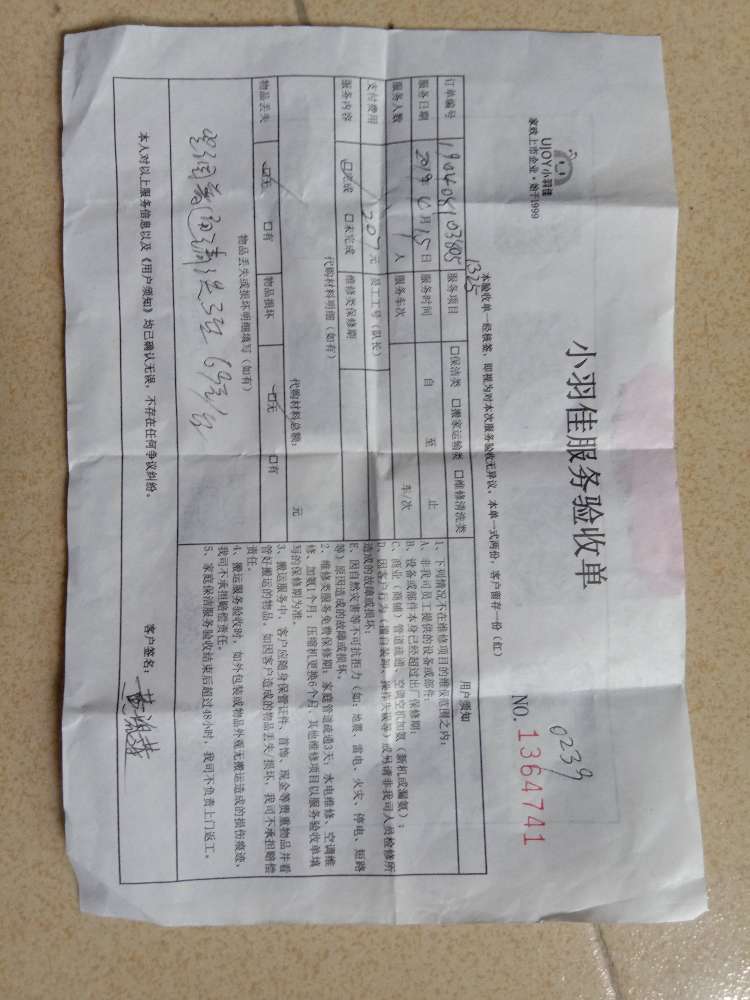 UJOY小羽佳
家政上市企业·始于1999
小羽佳服务验收单
0239
NO. 1364741
本验收单一经核签，即视为对本次服务验收无异议。本单一式两份，客户留存一份（红）
1325
订单编号 190408103805 服务项目 □保洁类 □搬家运输类 □维修清洗类
服务日期 2019年4月15日 服务时间 自 至 止
服务人数 1人 服务车次 车/次
支付费用 207元 员工工号（队长）
服务内容 ☑完成 □未完成 维修类保修期
代购材料明细（如有）
代购材料总额： 元
物品丢失 ☑无 □有 物品损坏 ☑无 □有
物品丢失或损坏明细填写（如有）
清洗3台 69元/台
本人对以上服务信息以及《用户须知》均已确认无误，不存在任何争议纠纷。
用户须知
1、下列情况不在维修项目的维保范围之内：
A、非我司员工提供的设备或部件；
B、设备或部件本身已经超过出厂保修期；
C、商业（商铺）管道疏通、空调空机加氨（新机或漏氨）；
D、因客户行为（擅自装卸、操作失误等）或另请非我司人员检修所
造成的故障或损坏；
E、因自然灾害等不可抗拒力（如：地震、雷电、火灾、停电、短路
等）原因造成的故障或损坏。
2、维修类服务免费保修期：家庭管道疏通3天；水电维修、空调维
修、加氨1个月；压缩机更换6个月，其他维修项目以服务验收单填
写的保修期为准。
3、搬运服务中，客户应随身保管证件、首饰、现金等贵重物品并看
管好搬运的物品，如因客户造成的物品丢失/损坏，我司不承担赔偿
责任。
4、搬运服务验收时，如外包装或物品外观无搬运造成的损伤痕迹，
我司不承担赔偿责任。
5、家庭保洁服务验收结束后超过48小时，我司不负责上门返工。
客户签名：